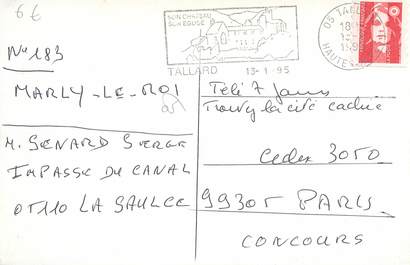 6€
SON CHATEAU
SON EGLISE
TALLARD 13-1-95
05 TALLARD
HAUTES
N° 183
MARLY-LE-ROI
M. SENARD SERGE
IMPASSE DU CANAL
05110 LA SAULCE
Télé 7 Jours
Trouvez la cité cachée
Cedex 3050
99305 PARIS
CONCOURS